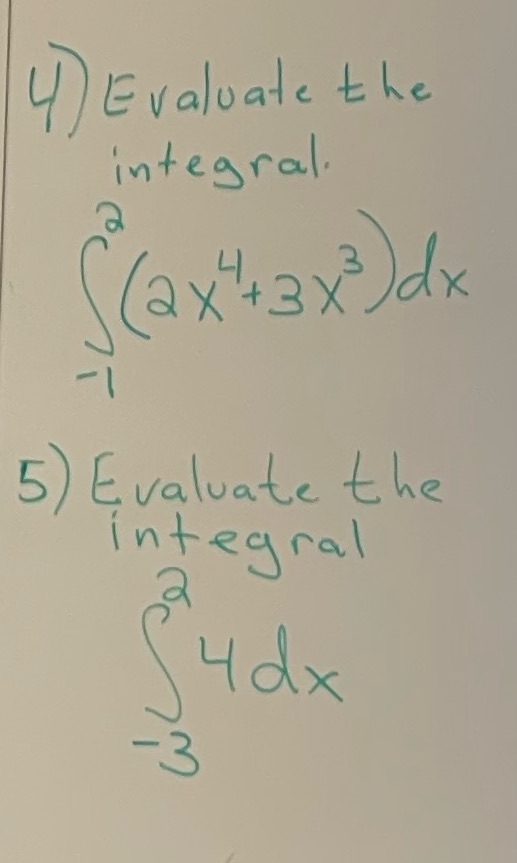 4) Evaluate the
integral.
∫₋₁² (2x⁴+3x³)dx
5) Evaluate the
integral
∫₋₃² 4dx